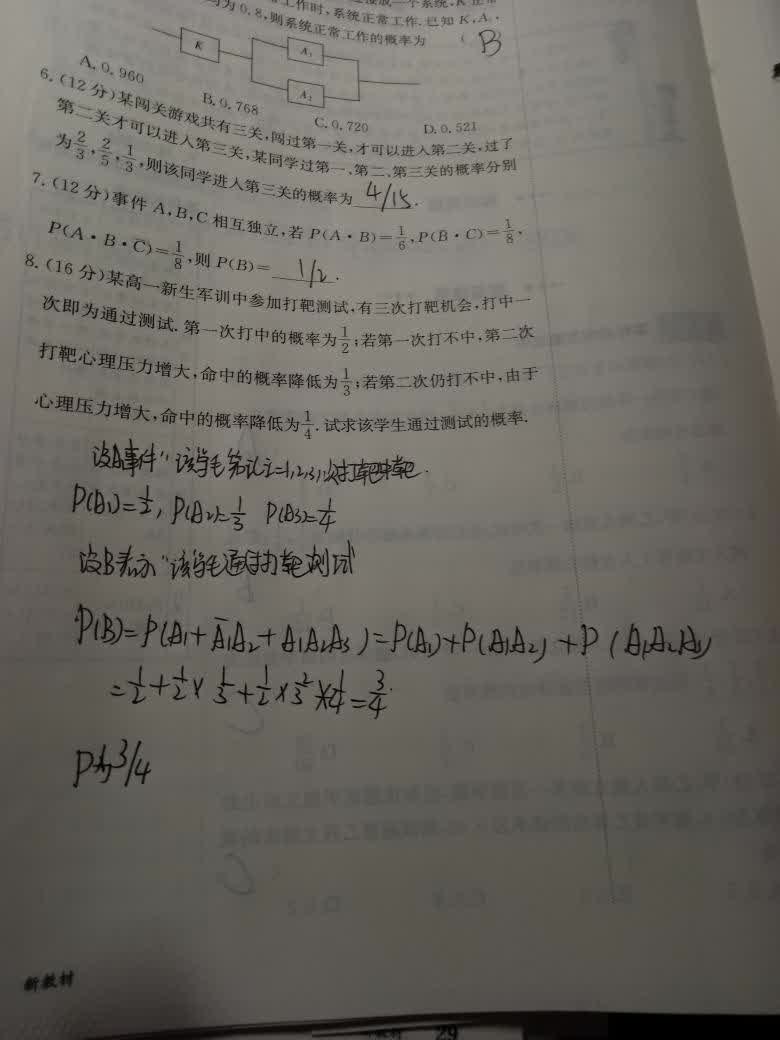 工作时,系统正常工作.已知 K,A₁,
为0.8,则系统正常工作的概率为 ( B )
K
A₁
A₂
A. 0.960
B. 0.768
C. 0.720
D. 0.521
6. (12分)某闯关游戏共有三关,闯过第一关,才可以进入第二关,过了
第二关才可以进入第三关,某同学过第一、第二、第三关的概率分别
为2/3,2/5,1/3,则该同学进入第三关的概率为 4/15.
7. (12分)事件 A,B,C 相互独立,若 P(A·B)=1/6,P(B̄·C)=1/8,
P(A·B·C̄)=1/8,则 P(B)= 1/2.
8. (16分)某高一新生军训中参加打靶测试,有三次打靶机会,打中一
次即为通过测试.第一次打中的概率为1/2;若第一次打不中,第二次
打靶心理压力增大,命中的概率降低为1/3;若第二次仍打不中,由于
心理压力增大,命中的概率降低为1/4.试求该学生通过测试的概率.
P(A₁)=1/2, P(A₂)=1/3 P(A₃)=1/4
设B表示"该学生通过打靶测试
P(B)=P(A₁+Ā₁A₂+A₁A₂A₃)=P(A₁)+P(A₁A₂)+P(A₁A₂A₃)
=1/2+1/2×1/3+1/2×2/3×1/4=3/4.
P为3/4
新教材
29